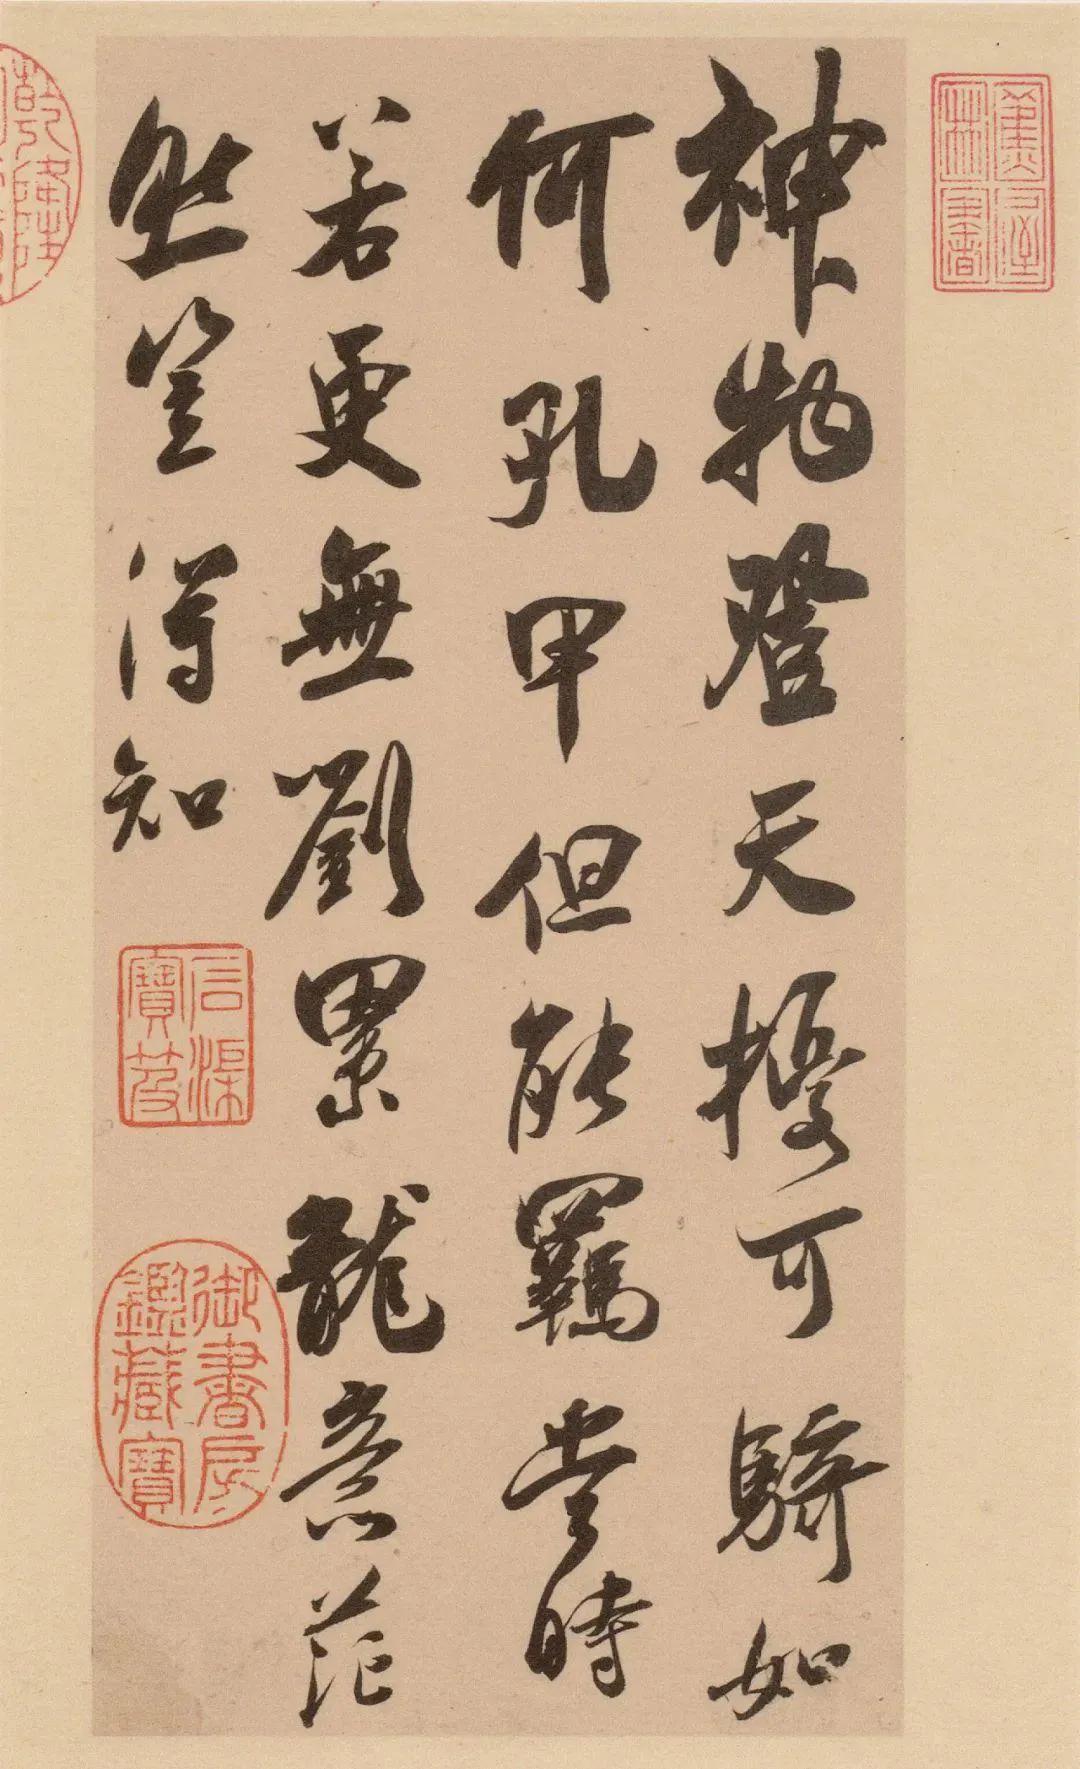 蕉林書屋
神物登天擾可騎如
何孔甲但能羈當時
若更無劉累龍意茫
然豈得知
石渠寶笈
御書房鑑藏寶
乾隆